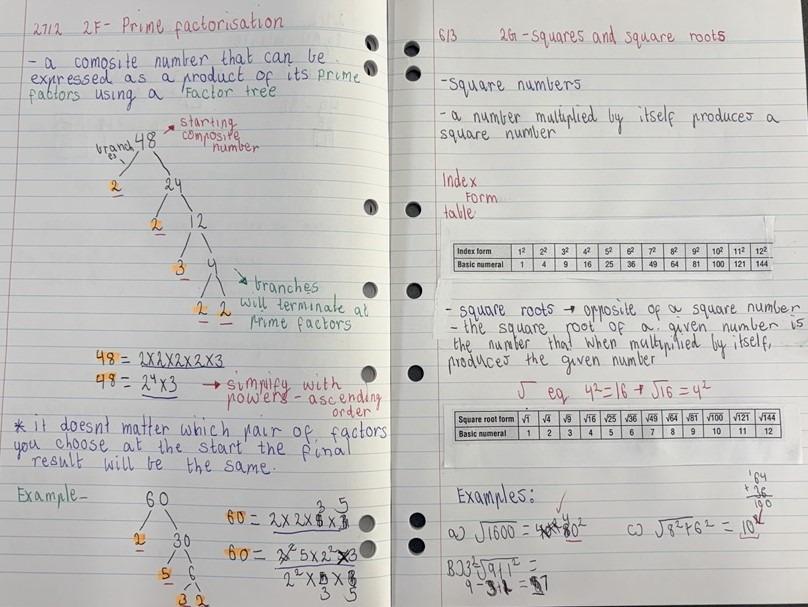 27/2 2F- Prime factorisation
- a comosite number that can be
expressed as a product of its prime
factors using a Factor tree
48
starting
composite
number
branch
es
2 24
2 12
3 4
2 2
branches
will terminate at
prime factors
48 = 2x2x2x2x3
48 = 2⁴x3 → simplify with
powers - ascending
order
* it doesnt matter which pair of factors
you choose at the start the final
result will be the same.
Example-
60
2 30
5 6
3 2
3 5
60 = 2x2x
60 = 5x2²x3
2²x
3 5
6/3 2G - squares and square roots
-square numbers
- a number multiplied by itself produces a
square number
Index
Form
table
Index form 1² 2² 3² 4² 5² 6² 7² 8² 9² 10² 11² 12²
Basic numeral 1 4 9 16 25 36 49 64 81 100 121 144
- square roots → opposite of a square number
- the square root of a given number is
the number that when multiplied by itself,
produces the given number
√ eg 4²=16 → √16 = 4²
Square root form √1 √4 √9 √16 √25 √36 √49 √64 √81 √100 √121 √144
Basic numeral 1 2 3 4 5 6 7 8 9 10 11 12
Examples:
64
+ 36
100
a) √1600 = 40²
c) √8²+6² = 10²
B) 3²√9+1² =
9 - = 7